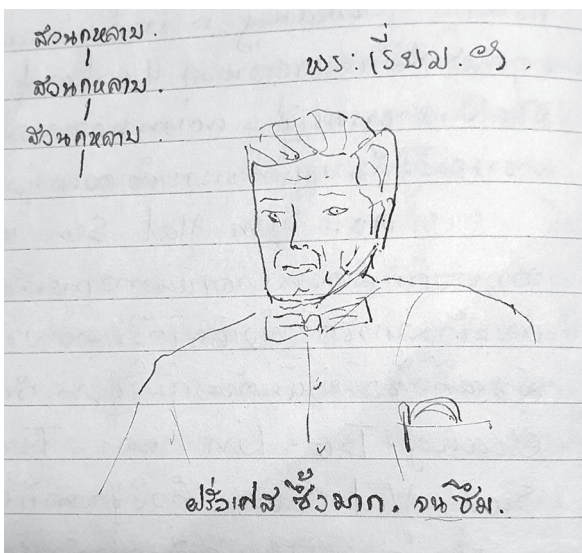 สวนกุหลาบ.
สวนกุหลาบ.
สวนกุหลาบ.
พระเรียม.
ฝรั่งเศส ซึ้งมาก. จนซึม.